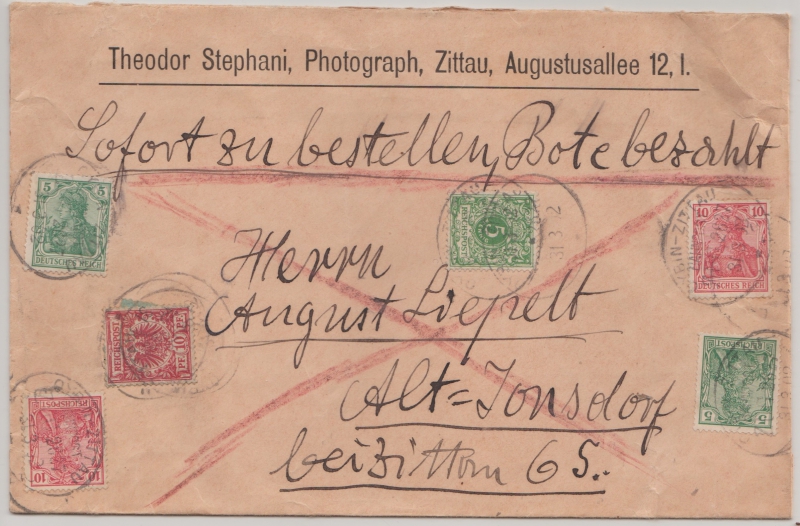 Theodor Stephani, Photograph, Zittau, Augustusallee 12, I.
Sofort zu bestellen, Bote bezahlt
5
DEUTSCHES REICH
5
REICHSPOST
31 3 2
10
DEUTSCHES REICH
BIN-ZITTAU
Herrn
August Liepelt
REICHSPOST
10 PF
Alt=Jonsdorf
bei Zittau
10
REICHSPOST
5
REICHSPOST